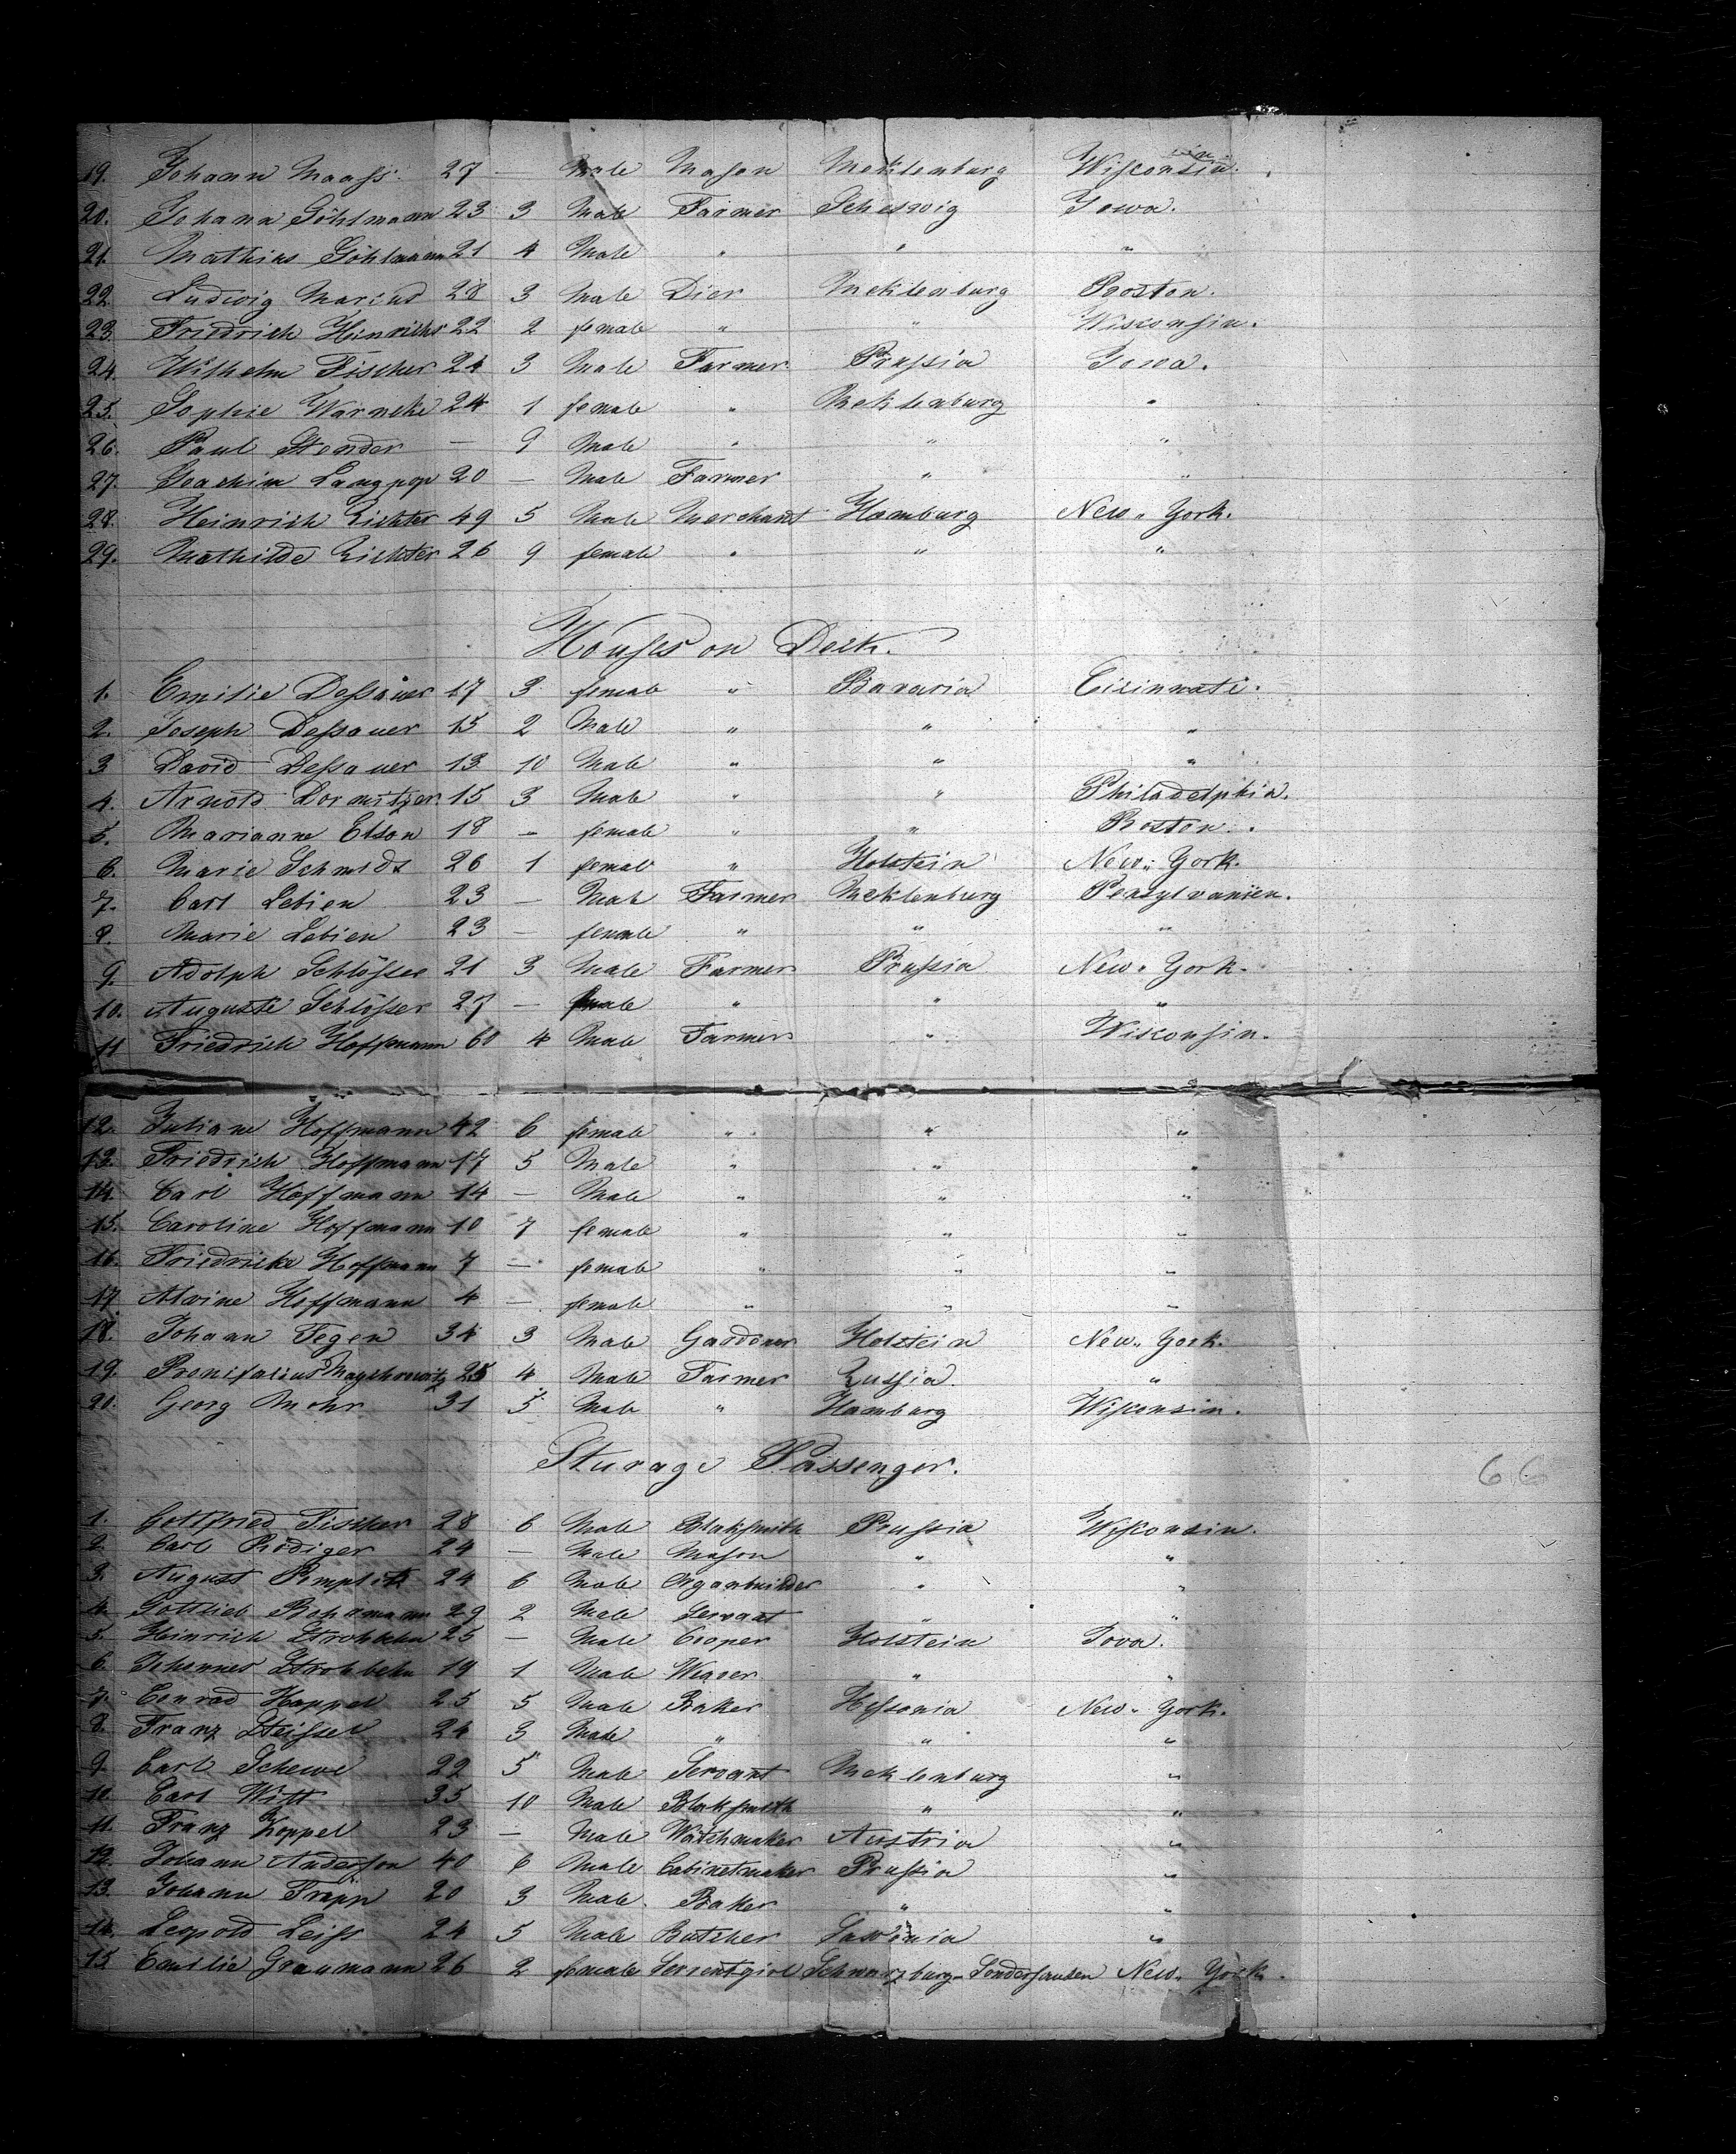 19. Johann Maass. 27 — Male Mason Meklenburg Wisconsin.
20. Johann Göhlmann 23 3 Male Farmer Scheswig Iowa.
21. Mathias Göhlmann 21 4 Male " " "
22. Ludwig Marcus 28 3 Male Dier Meklenburg Boston.
23. Friedrich Heinrichs 22 2 female " " Wisconsin.
24. Wilhelm Fischer 24 3 Male Farmer Prussia Iowa.
25. Sophie Warneke 24 1 female " Meklenburg "
26. Paul Stender — 9 Male " " "
27. Joachim Langpop 20 — Male Farmer " "
28. Heinrich Richter 49 5 Male Merchant Hamburg New-York.
29. Mathilde Richter 26 9 female " " "
Houses on Deck.
1. Emilie Dessauer 17 3 female " Bavaria Cicinnati.
2. Joseph Dessauer 15 2 Male " " "
3 David Dessauer 13 10 Male " " "
4. Arnold Dormitzer 15 3 Male " " Philadelphia.
5. Marianne Elson 18 — female " " Boston.
6. Marie Schmidt 26 1 female " Holstein New-York.
7. Carl Lebien 23 — Male Farmer Meklenburg Pensylvanien.
8. Marie Lebien 23 — female " " "
9. Adolph Schlösser 21 3 Male Farmer Prussia New-York.
10. Auguste Schlösser 27 — female " " "
11 Friedrich Hoffmann 60 4 Male Farmer " Wisconsin.
12. Juliane Hoffmann 42 6 female " " "
13. Friedrich Hoffmann 17 5 Male " " "
14. Carl Hoffmann 14 — Male " " "
15. Caroline Hoffmann 10 7 female " " "
16. Friedricke Hoffmann 7 — female " " "
17. Alwine Hoffmann 4 — female " " "
18. Johann Tegen 34 3 Male Gardener Holstein New-York.
19. 25 4 Male Farmer Russia. "
20. Georg Mohr 31 5 Male " Hamburg Wisconsin.
Sturage Passenger.
66
1. Gottfried Fischer 28 6 Male Blaksmith Prussia Wisconsin.
2. Carl Rödiger 24 — Male Mason " "
3. August 24 6 Male Organbuilder " "
4. Gottlieb 29 2 Male Servant " "
5. Heinrich Strohbehn 25 — Male Cooper Holstein Iova.
6. Johannes Strohbehn 19 1 Male Weaver " "
7. Conrad Happel 25 5 Male Baker Hessonia New-York.
8. Franz Steissel 24 3 Male " " "
9. Carl Schewe 22 5 Male Servant Meklenburg "
10. Carl Witt 35 10 Male Blaksmith " "
11. Franz Koppel 23 — Male Watchmaker Austria "
12. Johann Anderson 40 6 Male Cabinetmaker Prussia "
13. Johann Trapp 20 3 Male Baker " "
14. Leopold Leiss 24 5 Male Butcher "
15 Emilie Graumann 26 2 female Servent girl Schwarzburg-Sondershausen New-York.